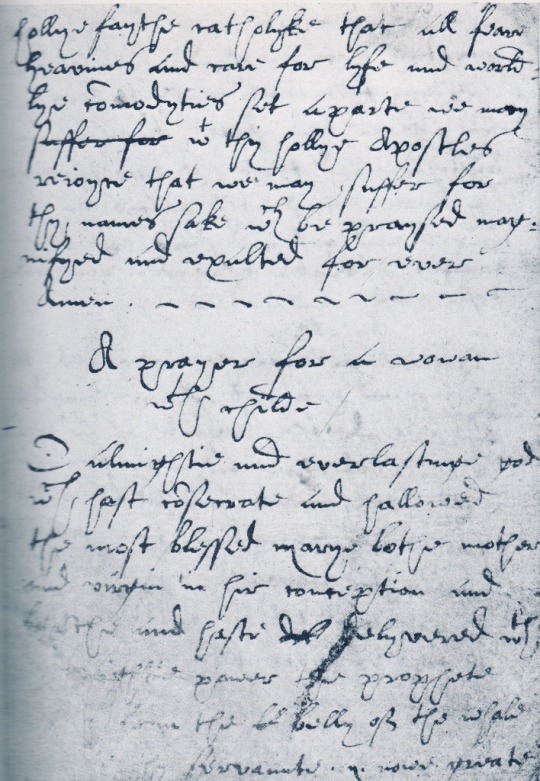 hollye faythe catholyke that all fear
heavines and care for lyfe and world-
lye cõmodyties set aparte we may
suffer for wt thy hollye Apostles
reioyce that we may suffer for
thy names sake wch be praysed mag-
nifyed and exulted for ever
Amen.
A prayer for a woman
wth childe
O almightie and everlastinge god
wch hast cõsecrate and hallowed
the most blessed marye bothe mother
and virgin in hir conception and
and haste delyvered wth
power the prophete
from the belly off the whale
servaunte nowe greate